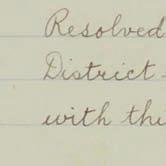 Resolved
District -
with thi